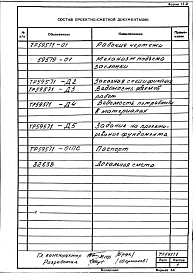 СОСТАВ ПРОЕКТНО-СМЕТНОЙ ДОКУМЕНТАЦИИ
Обозначение Наименование Приме-чание
ТР59571-01 Рабочие чертежи
59579-01 Механизм подъема
заслонки
ТР59571-Д2 Заказная спецификация
ТР59571-Д3 Ведомость объемов
работ
ТР59571-Д4 Ведомость потребности
в материалах
ТР59571-Д5 Задание на проекти-
рование фундамента
ТР59571-01ПС Паспорт
32538 Локальная смета
Гл. конструктор
Разработал
ТР59571